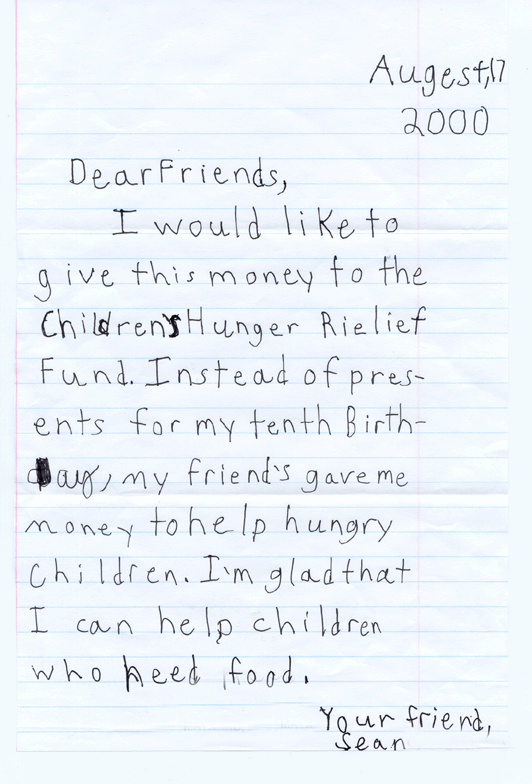 Augest,17
2000
Dear Friends,
I would like to
give this money to the
Children's Hunger Rielief
Fund. Instead of pres-
ents for my tenth Birth-
day, my friend's gave me
money to help hungry
children. I'm glad that
I can help children
who need food.
Your friend,
Sean